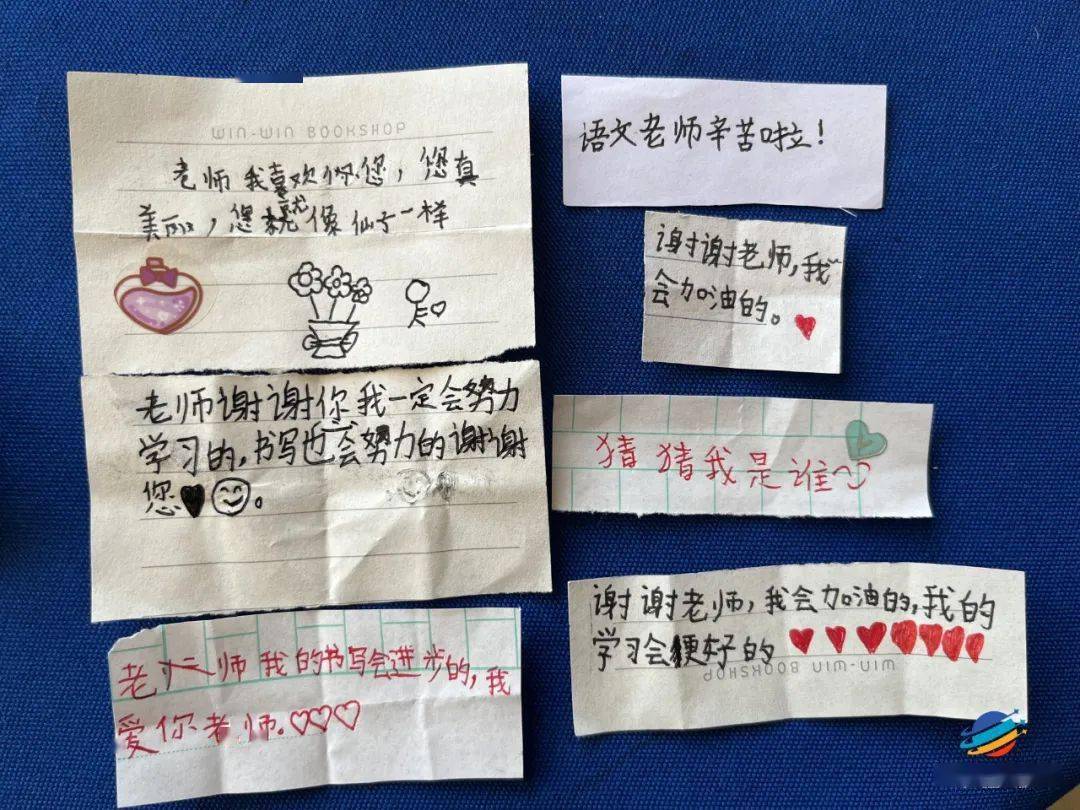 WIN-WIN BOOKSHOP
老师我喜欢你您，您真
美丽，您就像仙子一样
老师谢谢你我一定会努力
学习的，书写也会努力的谢谢
您。
老师我的书写会进步的，我
爱你老师。
语文老师辛苦啦！
谢谢老师，我
会加油的。
猜猜我是谁
谢谢老师，我会加油的，我的
学习会梗好的
WIN-WIN BOOKSHOP